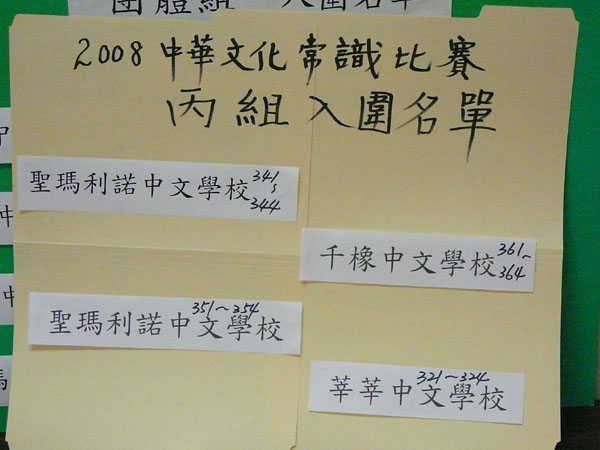 團體組 入圍名單
2008中華文化常識比賽
丙組入圍名單
聖瑪利諾中文學校 341~344
千橡中文學校 361~364
聖瑪利諾中文學校 351~354
莘莘中文學校 321~324
中
中
馬